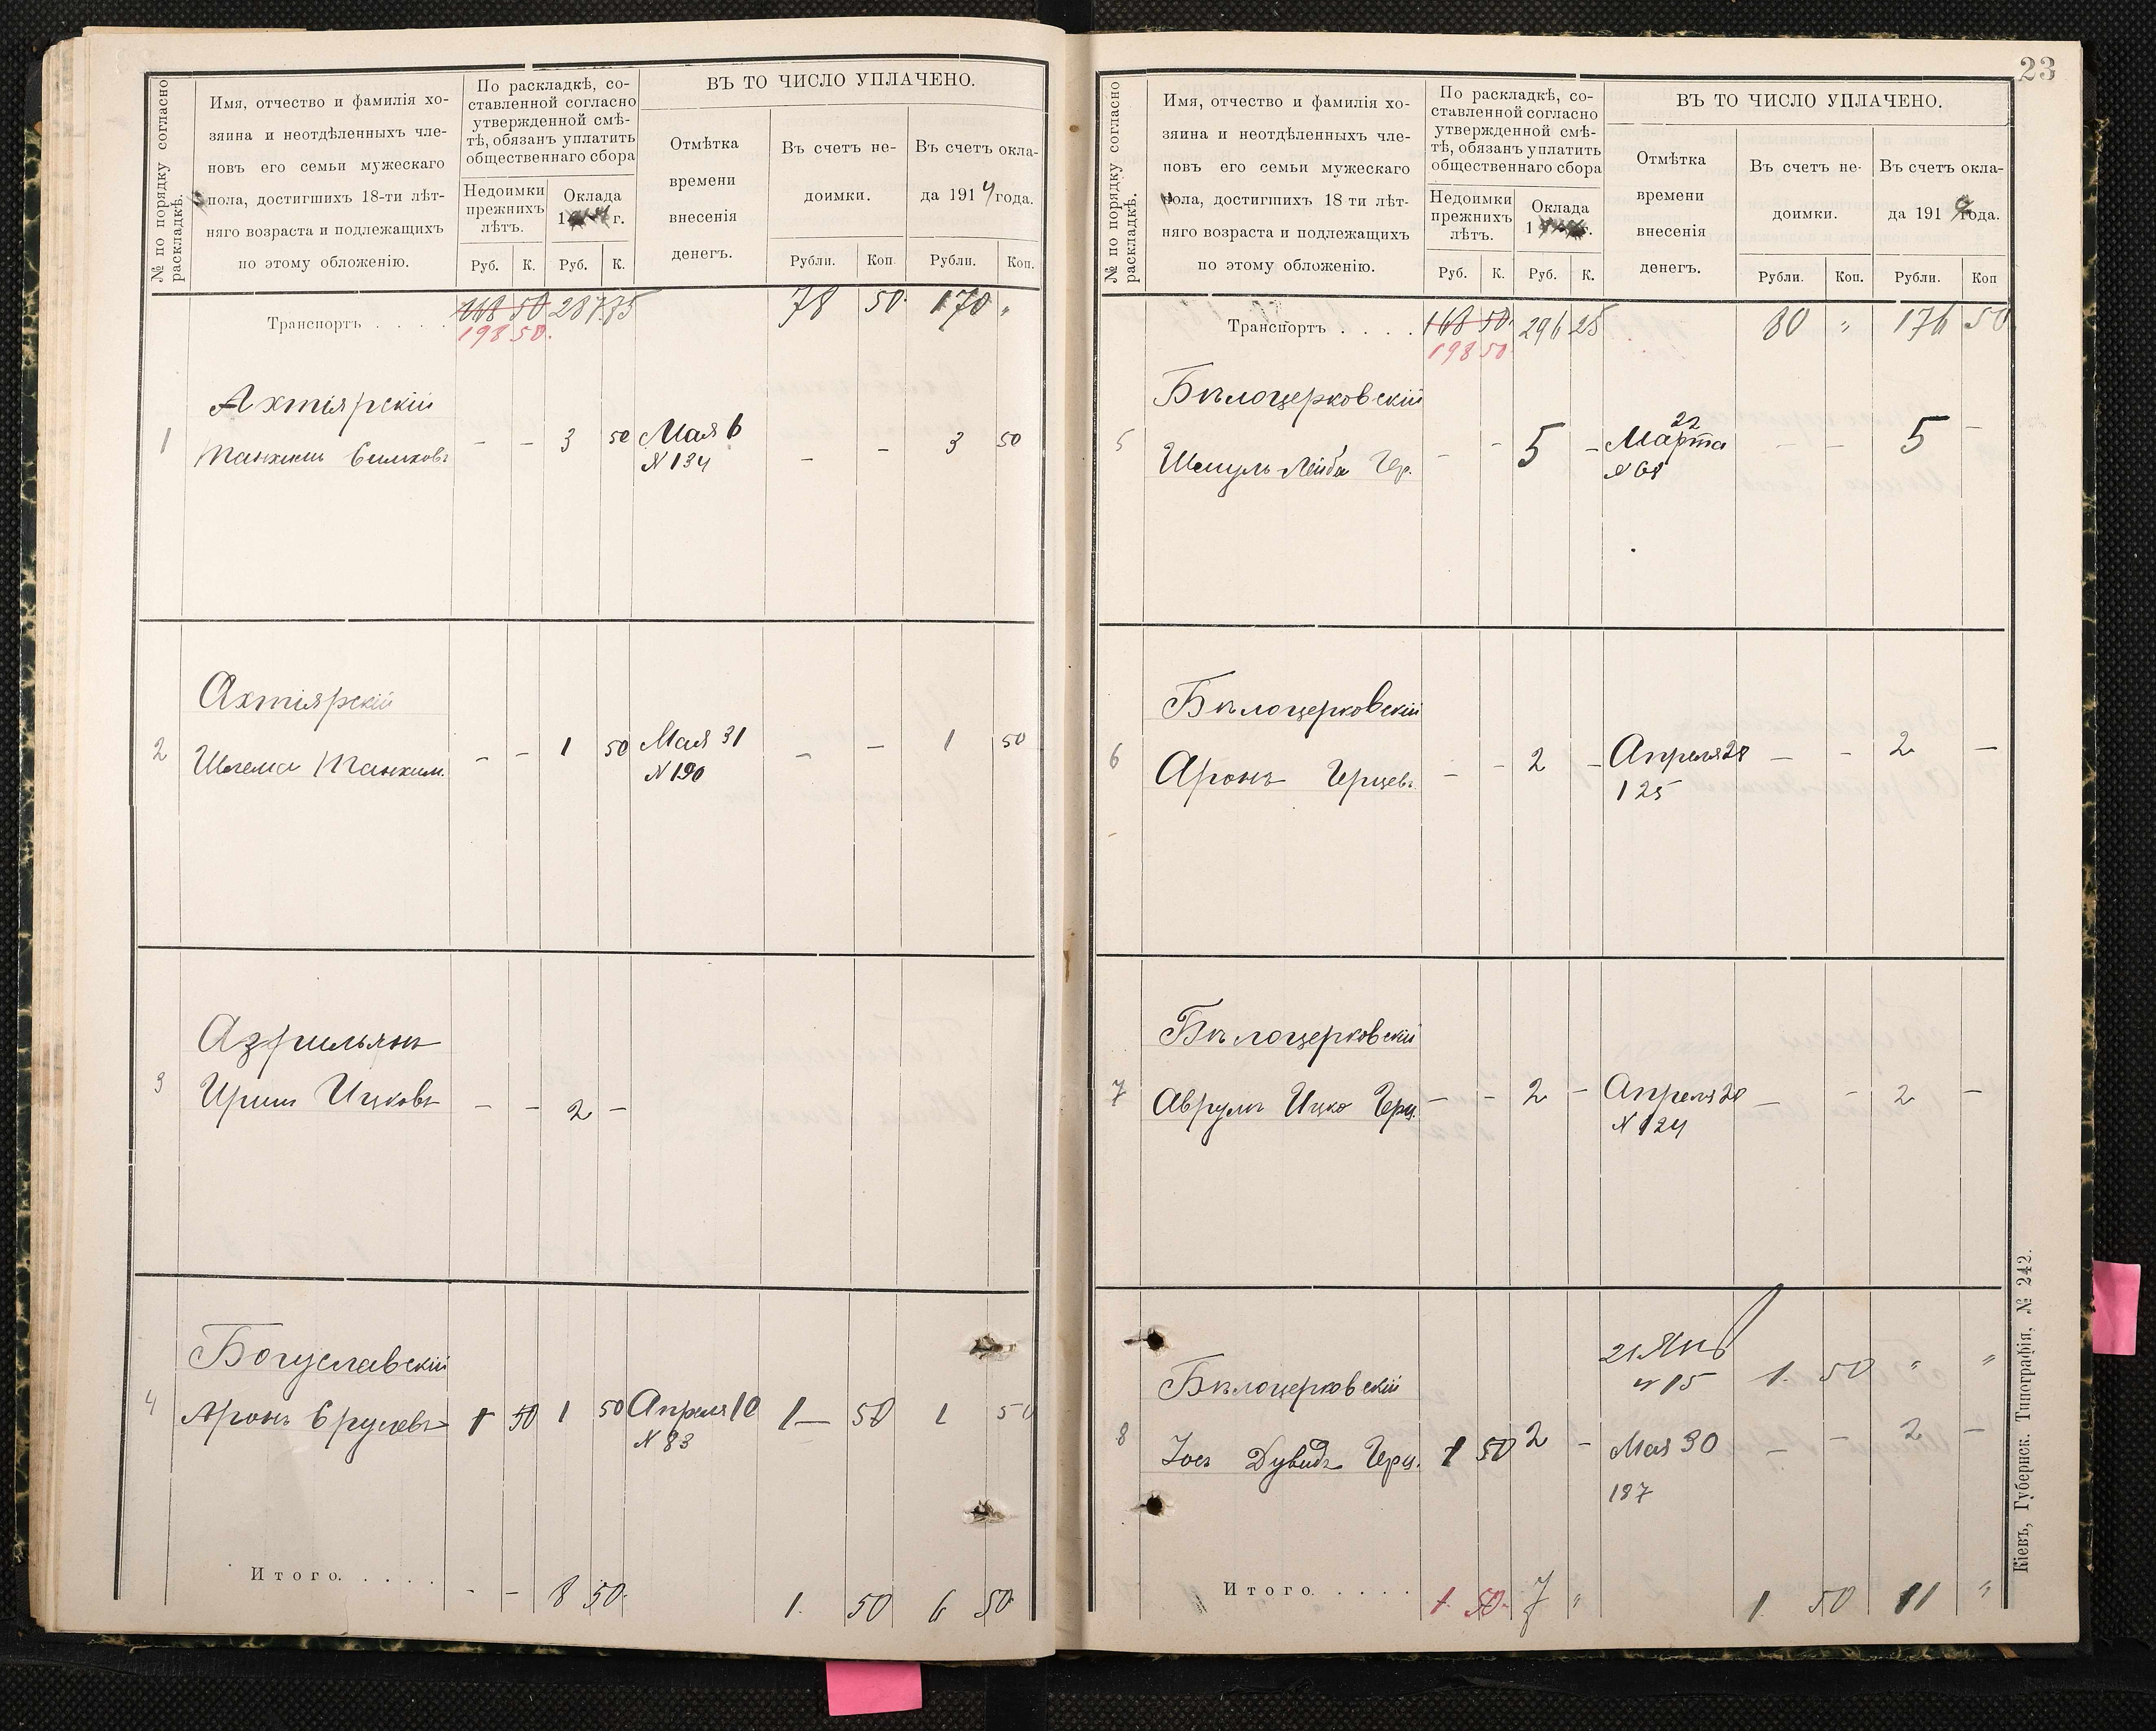 № по порядку согласно
раскладкѣ.
Имя, отчество и фамилія хо-
зяина и неотдѣленныхъ чле-
новъ его семьи мужескаго
пола, достигшихъ 18-ти лѣт-
няго возраста и подлежащихъ
по этому обложенію.
По раскладкѣ, со-
ставленной согласно
утвержденной смѣ-
тѣ, обязанъ уплатить
общественнаго сбора
Недоимки
прежнихъ
лѣтъ.
Оклада
г.
Руб. К. Руб. К.
ВЪ ТО ЧИСЛО УПЛАЧЕНО.
Отмѣтка
времени
внесенія
денегъ.
Въ счетъ не-
доимки.
Въ счетъ окла-
да 1914 года.
Рубли. Коп. Рубли. Коп.
Транспортъ . . . . 168 50 287 75 78 50 170 "
198 50.
Ахтiярскій
1 Симховъ - - 3 50 Мая 6 - - 3 50
N 134
Ахтiярскій
2 Шлема - - 1 50 Мая 31 - - 1 50
N 190
Азрильянъ
3 Ицковъ - - 2 -
Богуславскій
4 Аронъ Сруловъ 1 50 1 50 Апреля 10 1 - 50 1 50
N 83
Итого. . . . . - - 8 50. 1. 50 6 50
23
№ по порядку согласно
раскладкѣ.
Имя, отчество и фамилія хо-
зяина и неотдѣленныхъ чле-
новъ его семьи мужескаго
пола, достигшихъ 18 ти лѣт-
няго возраста и подлежащихъ
по этому обложенію.
По раскладкѣ, со-
ставленной согласно
утвержденной смѣ-
тѣ, обязанъ уплатить
общественнаго сбора
Недоимки
прежнихъ
лѣтъ.
Оклада
г.
Руб. К. Руб. К.
ВЪ ТО ЧИСЛО УПЛАЧЕНО.
Отмѣтка
времени
внесенія
денегъ.
Въ счетъ не-
доимки.
Въ счетъ окла-
да 1914 года.
Рубли. Коп. Рубли. Коп
Транспортъ . . . . 168 50. 296 25 80 " 176 50
198 50.
Бѣлоцерковскій
5 Шмуль Лейба Гер. - - 5 - 22 Марта - - 5 -
N 68
Бѣлоцерковскій
6 Аронъ Герцевъ - - 2 - Апреля 28 - - 2 -
125
Бѣлоцерковскій
7 Аврумъ Ицко Герц. - - 2 - Апреля 28 - - 2 -
N 124
21 Янв 1. 50 " "
N 15
Бѣлоцерковскій
8 Iосъ Дувидъ Герц. 1 50 2 - Мая 30 - - 2 -
187
Итого. . . . . 1. 50. 7 " 1. 50 11 "
Кіевъ, Губернск. Типографія, № 242.